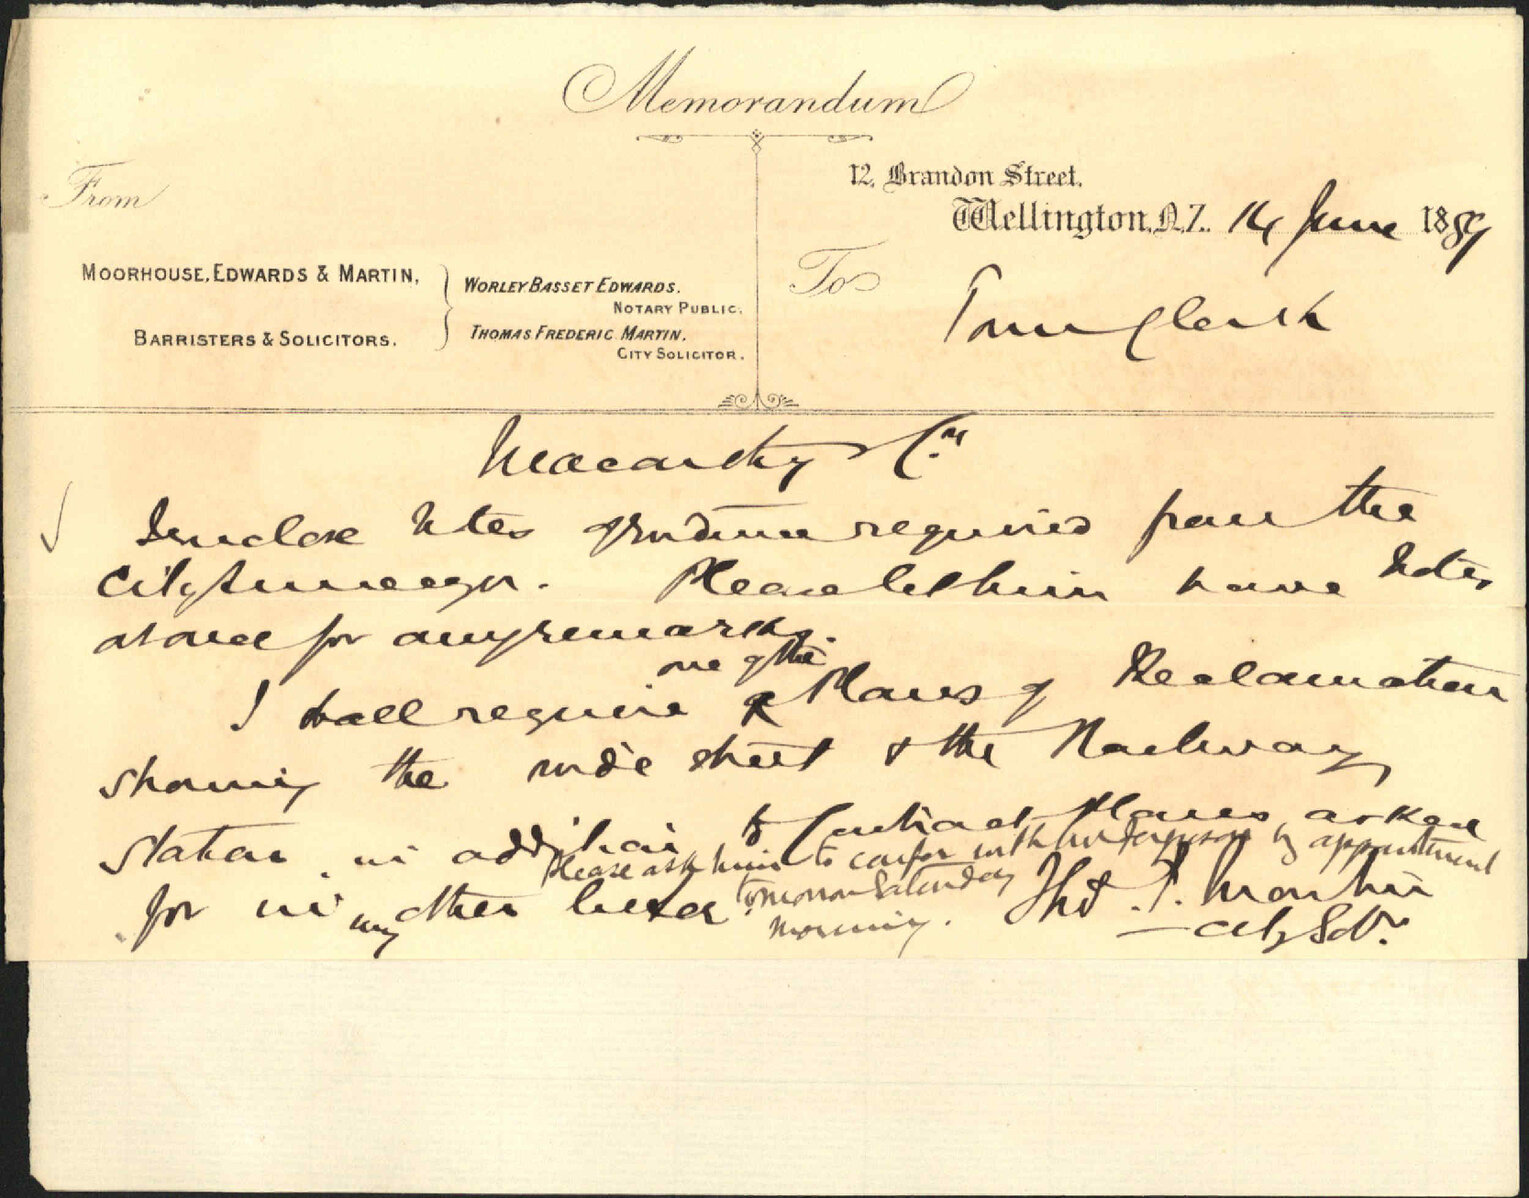 Memorandum
From
12, Brandon Street,
Wellington, N.Z. 14 June 1889
MOORHOUSE, EDWARDS & MARTIN,
BARRISTERS & SOLICITORS.
WORLEY BASSET EDWARDS.
NOTARY PUBLIC.
THOMAS FREDERIC MARTIN.
CITY SOLICITOR.
To
Town Clerk
Macarthy
I enclose Notes of evidence required from the
City Surveyor. Please let him have Notes
at once for any remarks.
one of the
I shall require Plans of Reclamation
showing the wide street & the Railway
Station in addition to Contract Plans asked
for in my other letter.
Please ask him to confer with Mr Ferguson by appointment
tomorrow Saturday
morning.
Thos. F. Martin
City Solr.